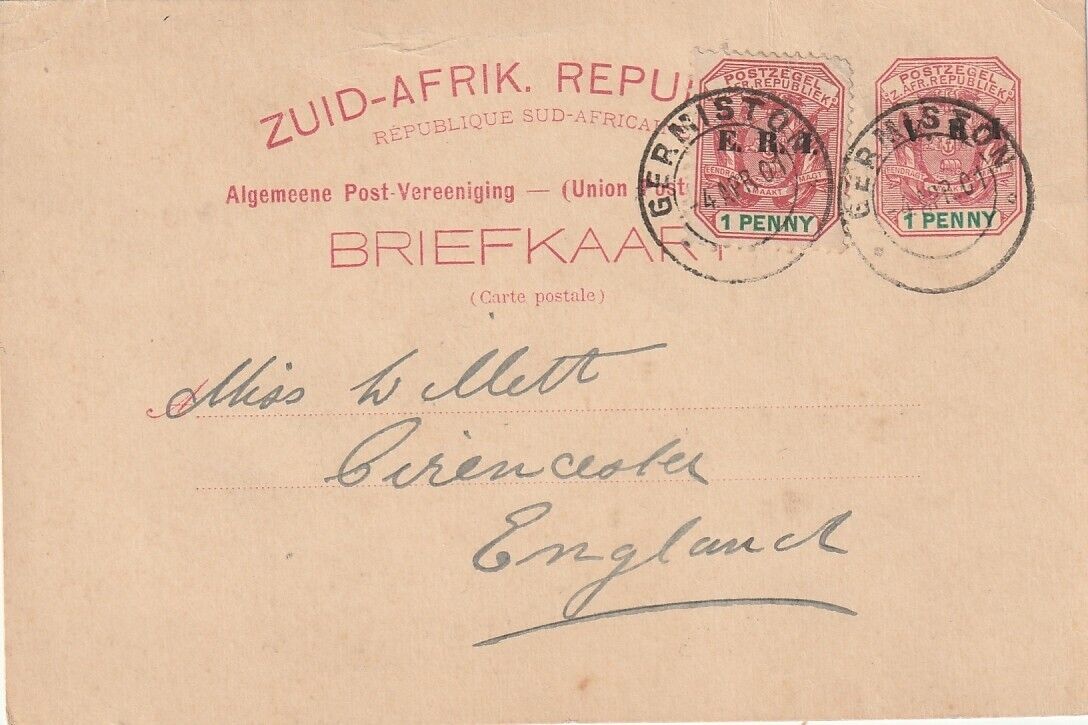 ZUID-AFRIK. REPU
RÉPUBLIQUE SUD-AFRICAI
Algemeene Post-Vereeniging — (Union Posta
BRIEFKAART
(Carte postale)
POSTZEGEL
FR. REPUBLIEK.
E. R. I.
EENDRAGT MAAKT MAGT
1 PENNY
GERMISTON
4 APR. 01
POSTZEGEL
Z. AFR. REPUBLIEK.
V. R. I.
EENDRAGT MAAKT MAGT
1 PENNY
GERMISTON
4 APR. 01
Miss Willett
Cirencester
England